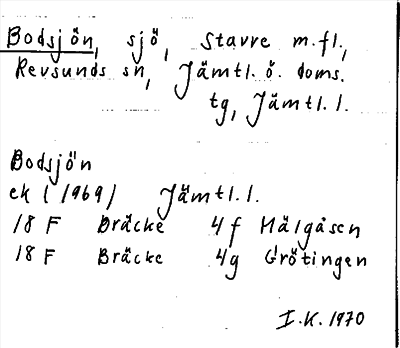 Bodsjön, sjö, Stavre m.fl.,
Revsunds sn, Jämtl. ö. doms.
tg, Jämtl. l.
Bodsjön
ek (1969) Jämtl. l.
18 F Bräcke 4 f Hälgåsen
18 F Bräcke 4g Grötingen
I.K. 1970